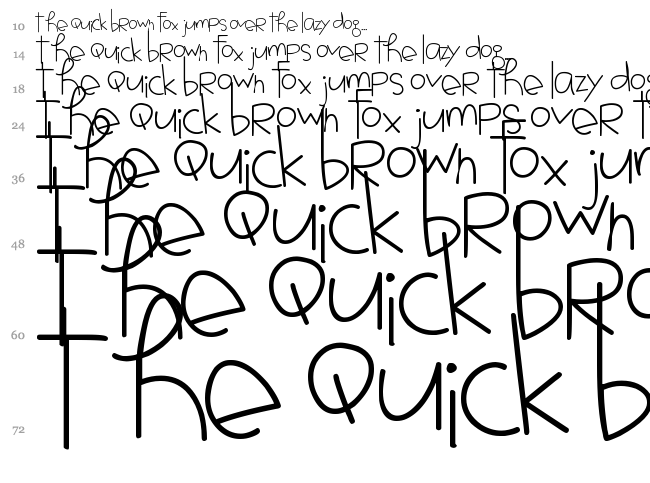 10 the Quick bRown fox jumPs oveR the lazy dog...
14 the Quick bRown fox jumPs oveR the lazy dog
18 the Quick bRown fox jumPs oveR the lazy dog
24 the Quick bRown fox jumPs oveR t
36 the Quick bRown fox jum
48 the Quick bRown
60 the Quick bRo
72 the Quick b